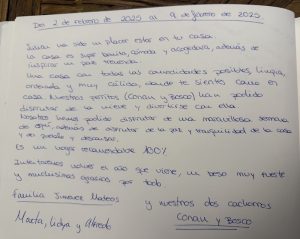 Del 2 de febrero de 2025 al 9 de febrero de 2025.
ha sido un placer estar en tu casa.
la casa es super bonita, cómoda y acogedora, además de
inspirar un paz tremenda.
Una casa con todas las comodidades posibles, limpia,
ordenada y muy cálida, donde te sientes como en
casa. Nuestros perritos (Conan y Bosco) han podido
disfrutar de la nieve y divertirse con ella
Nosotros hemos podido disfrutar de una maravillosa semana
de esquí, además de disfrutar de la paz y tranquilidad de la casa
y de poder descansar.
Es un lugar recomendable 100%
Intentaremos volver el año que viene, un beso muy fuerte
y muchísimas gracias por todo
Familia Jimenez Mateos y nuestros dos cachorros
Marta, Lidya y Alfredo Conan y Bosco